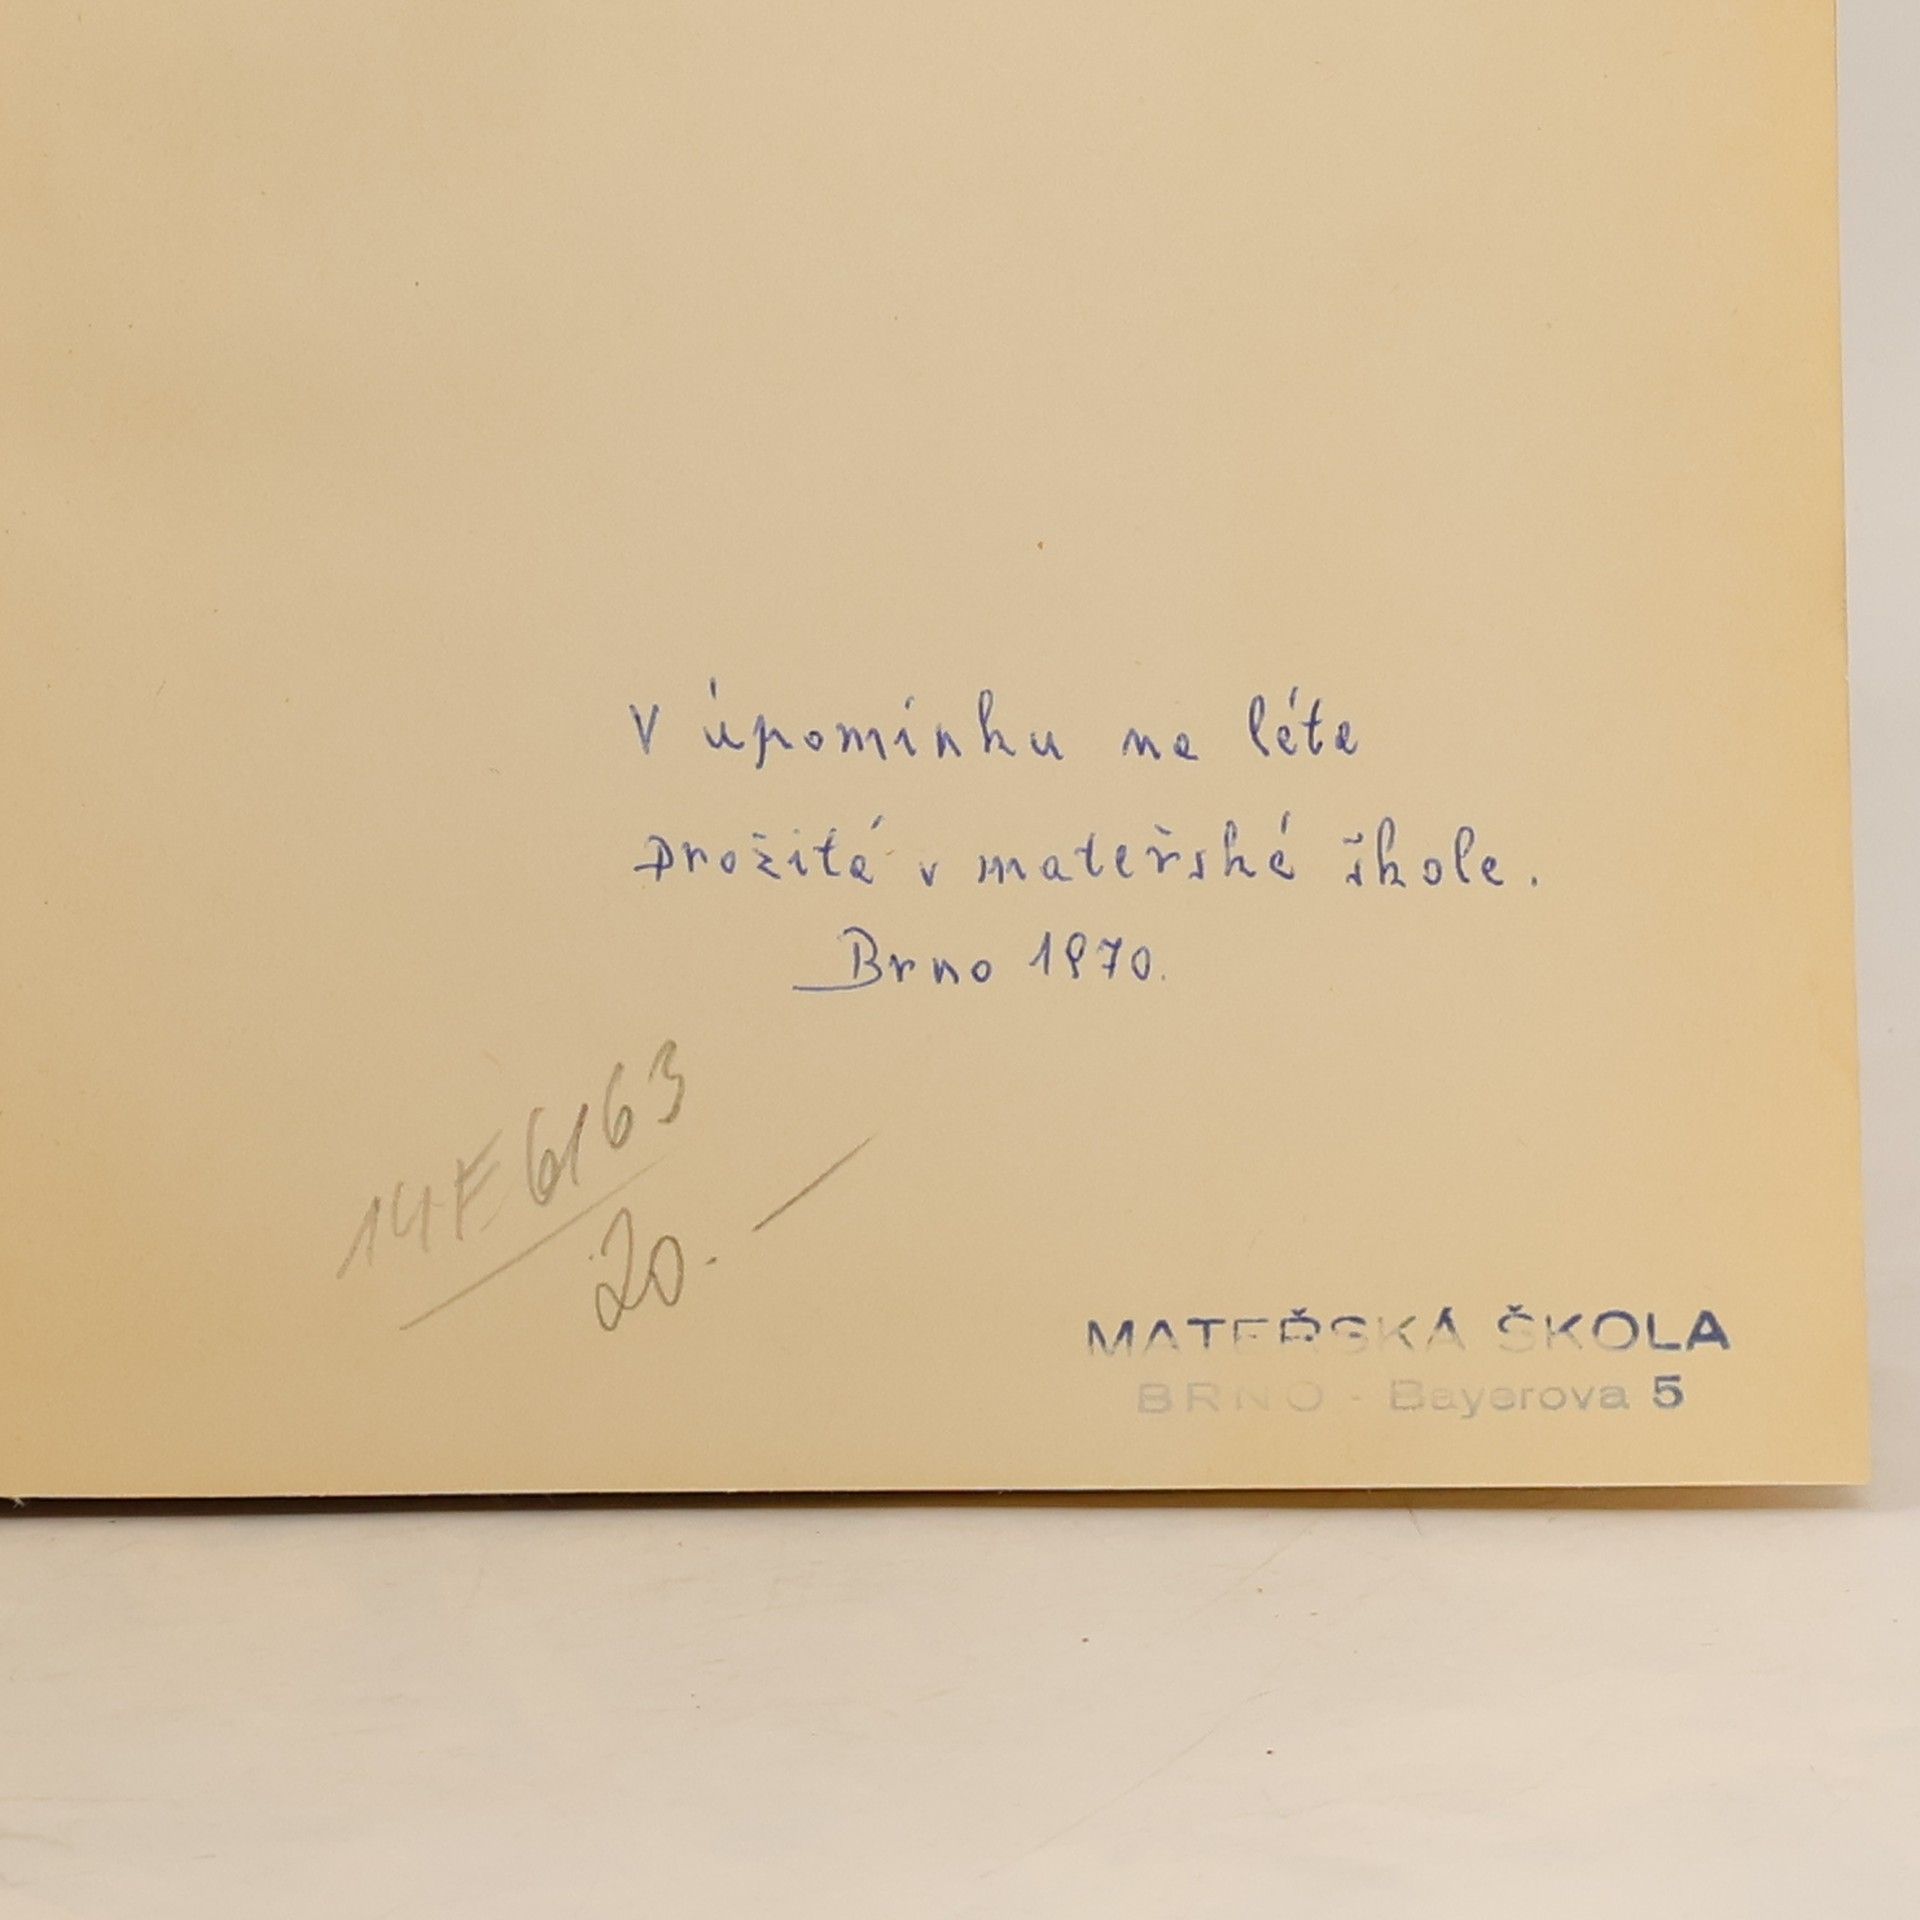 V úpomínku na léta
prožitá v mateřské škole.
Brno 1970.
14F6163
20.-
MATEŘSKÁ ŠKOLA
BRNO - Bayerova 5